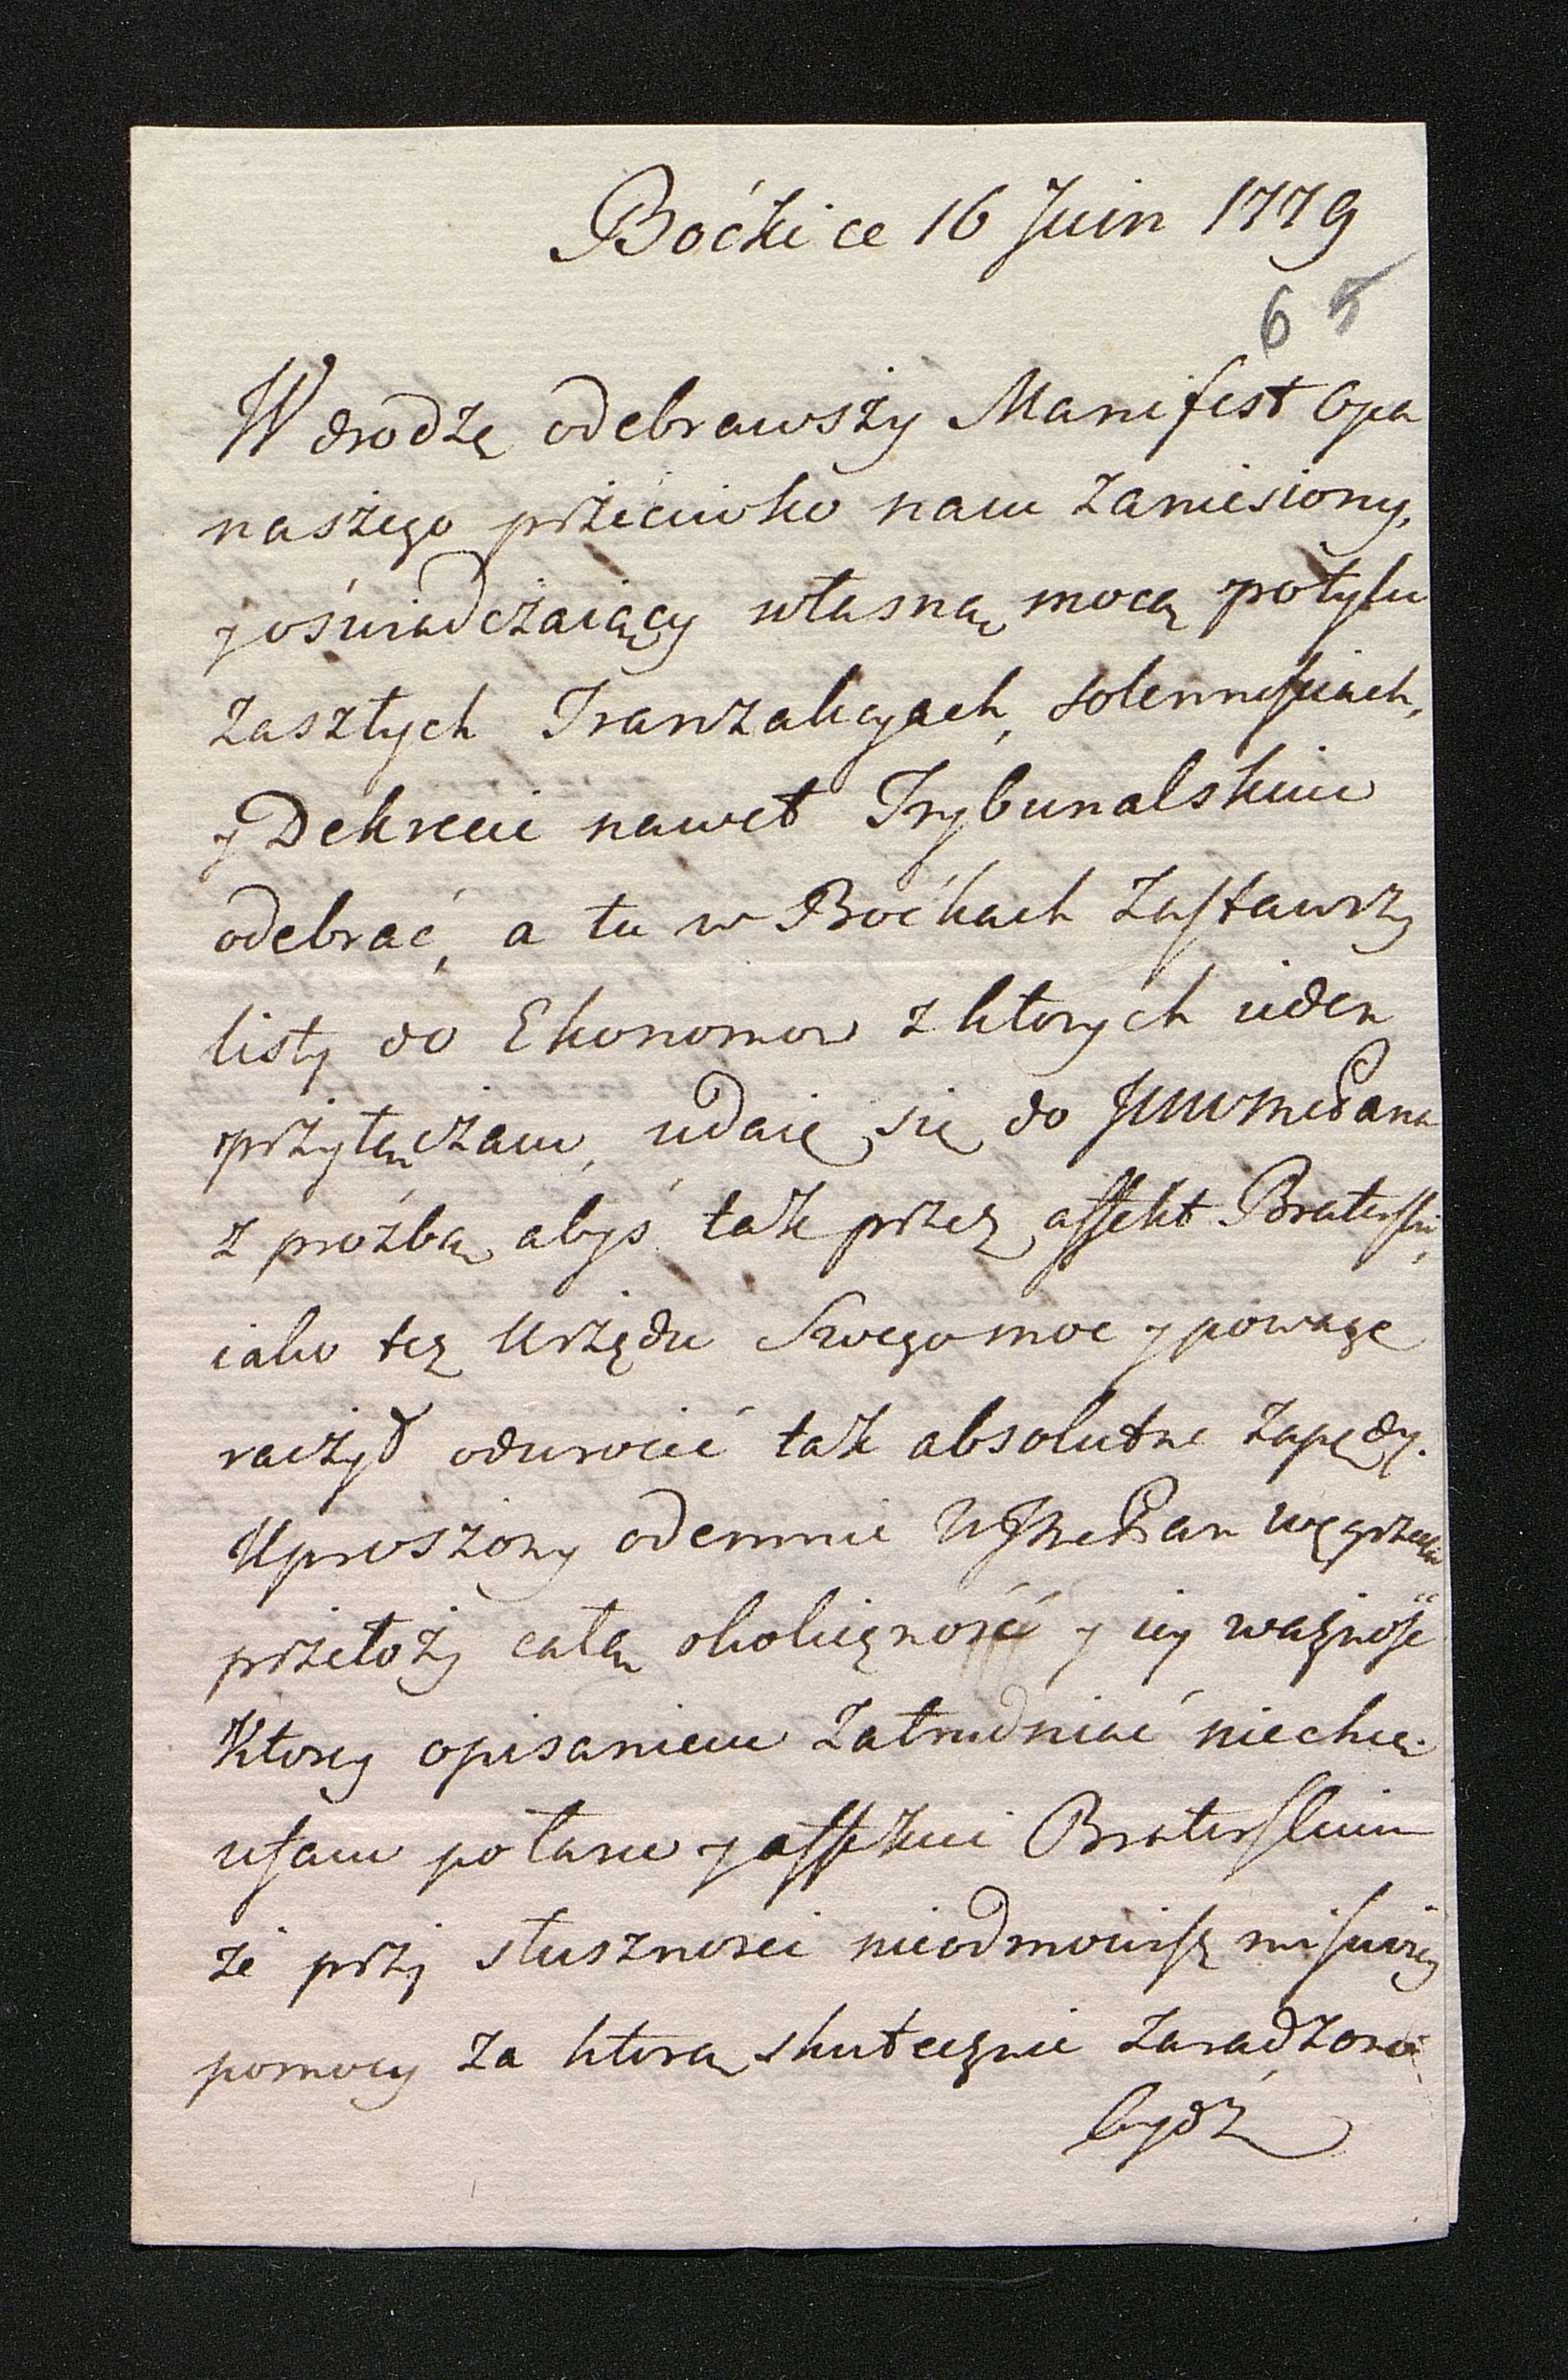 Boćki ce 16 Juin 1779
65
W drodżę odebrawszy Manifest Opa
naszego przeciwko nam zaniesiony,
y oświadczaiący własną mocą po tylu
zaszłych Tranzakcyach, solennościach,
y Dekrecie nawet Trybunalskim
odebrać, a tu w Boćkach zastawszy
listy do Ekonomow z ktorych ieden
przyłączam, udaię się do JWWMePana
z prożbą abyś tak przez affekt Braterski,
iako tez Urzędu Swego moc y powagę
raczył odwrocić tak absolutne zapędy.
Uproszony odemnie WJmcPan
przełoży całą okoliczność y iey ważność
Ktorey opisaniem zatrudniać niechcę.
ufam po łasce y affekcie Braterskim
że przy słusznosci nieodmowisz mi swoiey
pomocy za ktorą skutecznie zaradzono
bydź